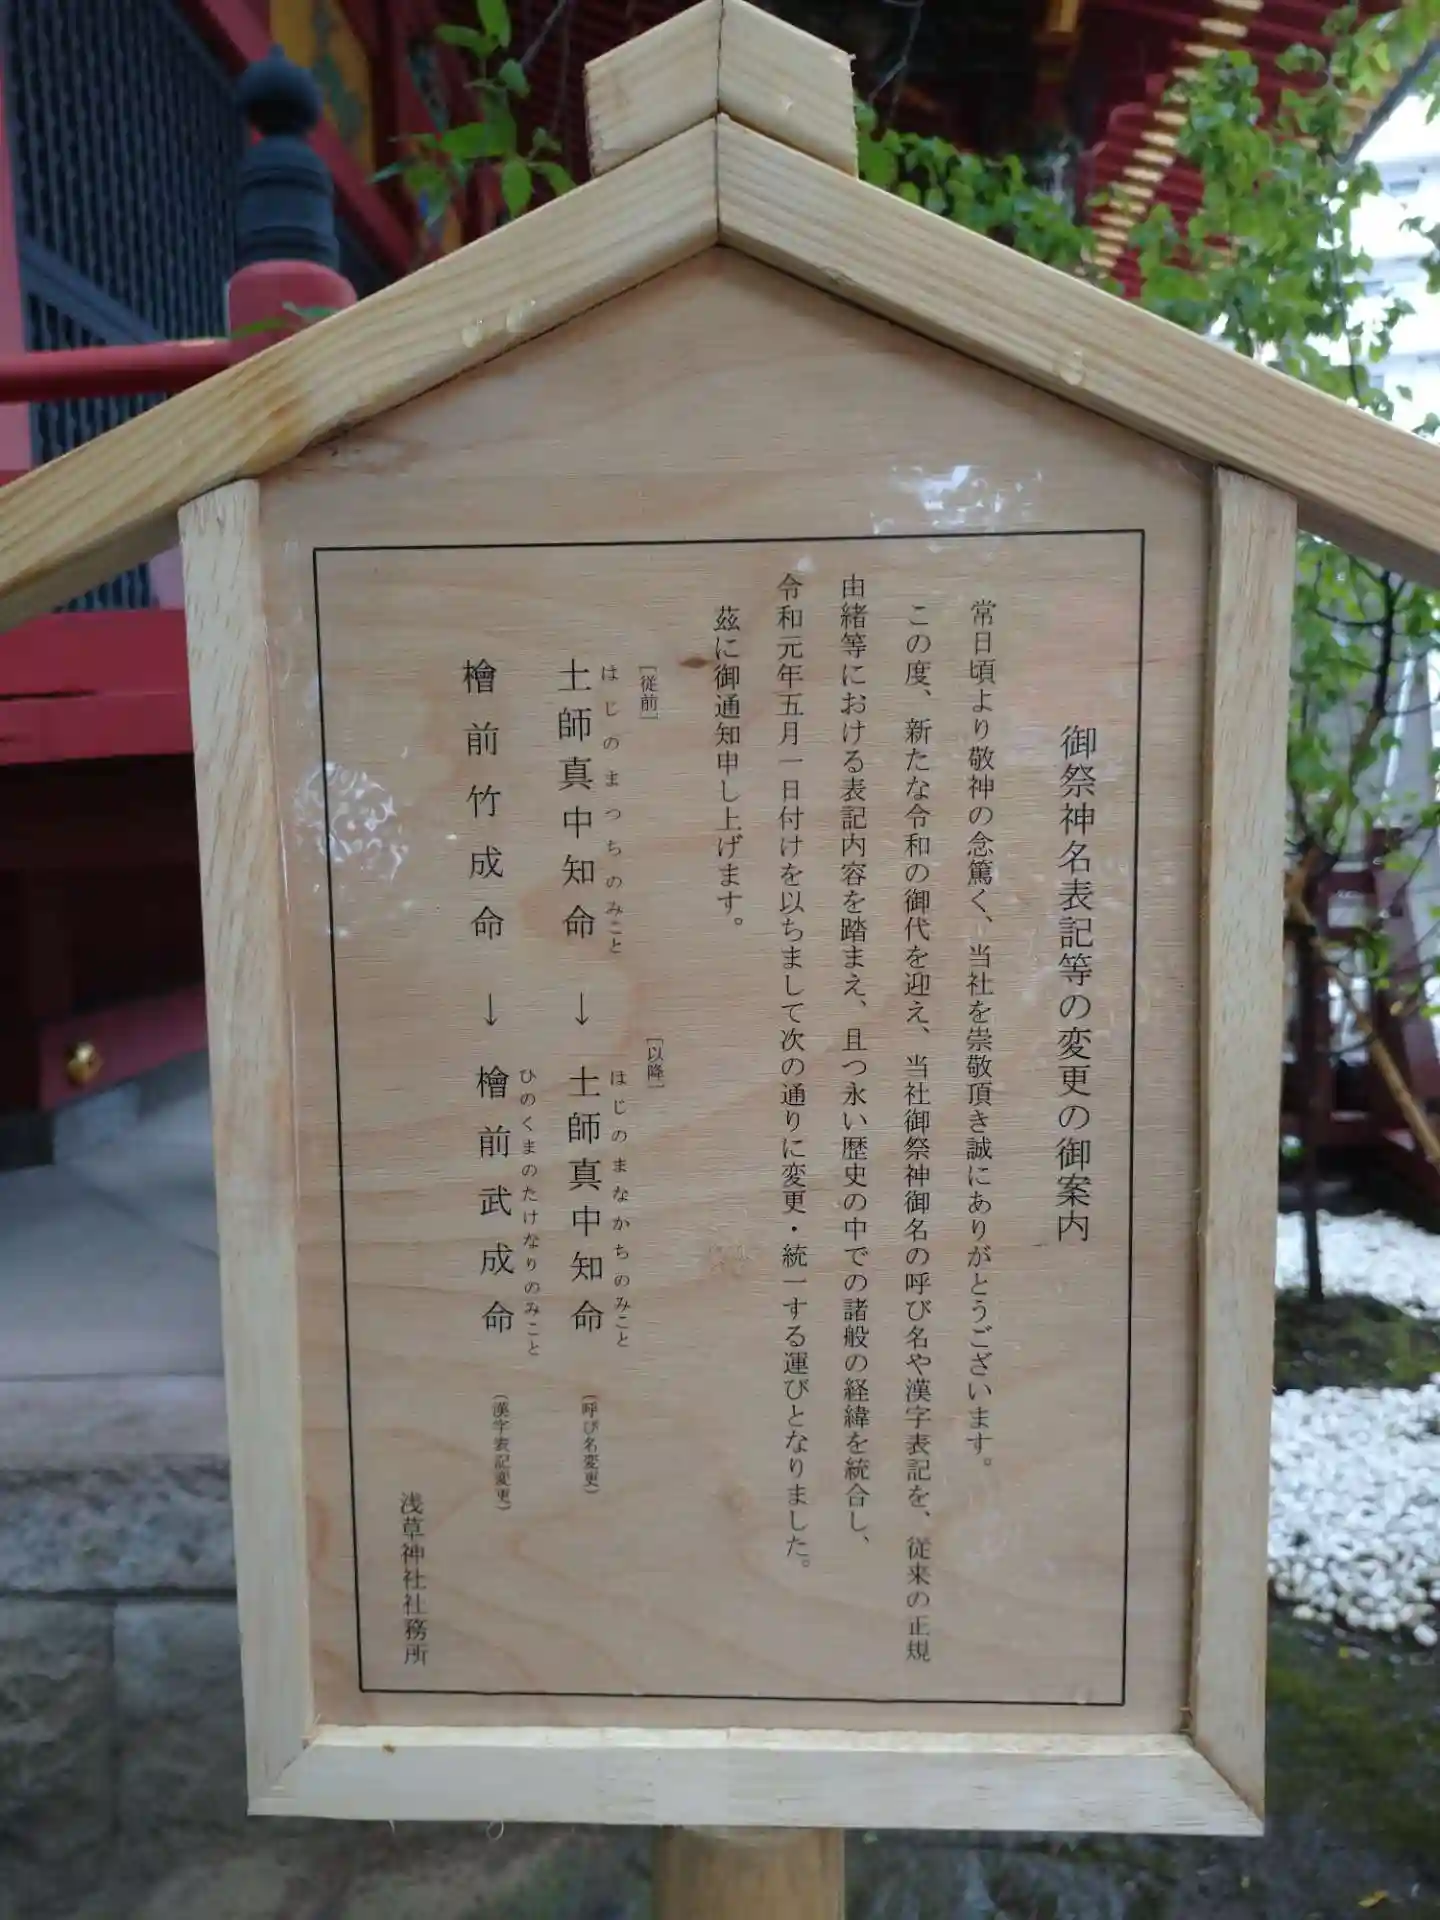 御祭神名表記等の変更の御案内
常日頃より敬神の念篤く、当社を崇敬頂き誠にありがとうございます。
この度、新たな令和の御代を迎え、当社御祭神御名の呼び名や漢字表記を、従来の正規
由緒等における表記内容を踏まえ、且つ永い歴史の中での諸般の経緯を統合し、
令和元年五月一日付けを以ちまして次の通りに変更・統一する運びとなりました。
茲に御通知申し上げます。
［従前］
［以降］
はじのまつちのみこと
土師真中知命
↓
はじのまなかちのみこと
土師真中知命
（呼び名変更）
檜前竹成命
↓
ひのくまのたけなりのみこと
檜前武成命
（漢字表記変更）
浅草神社社務所